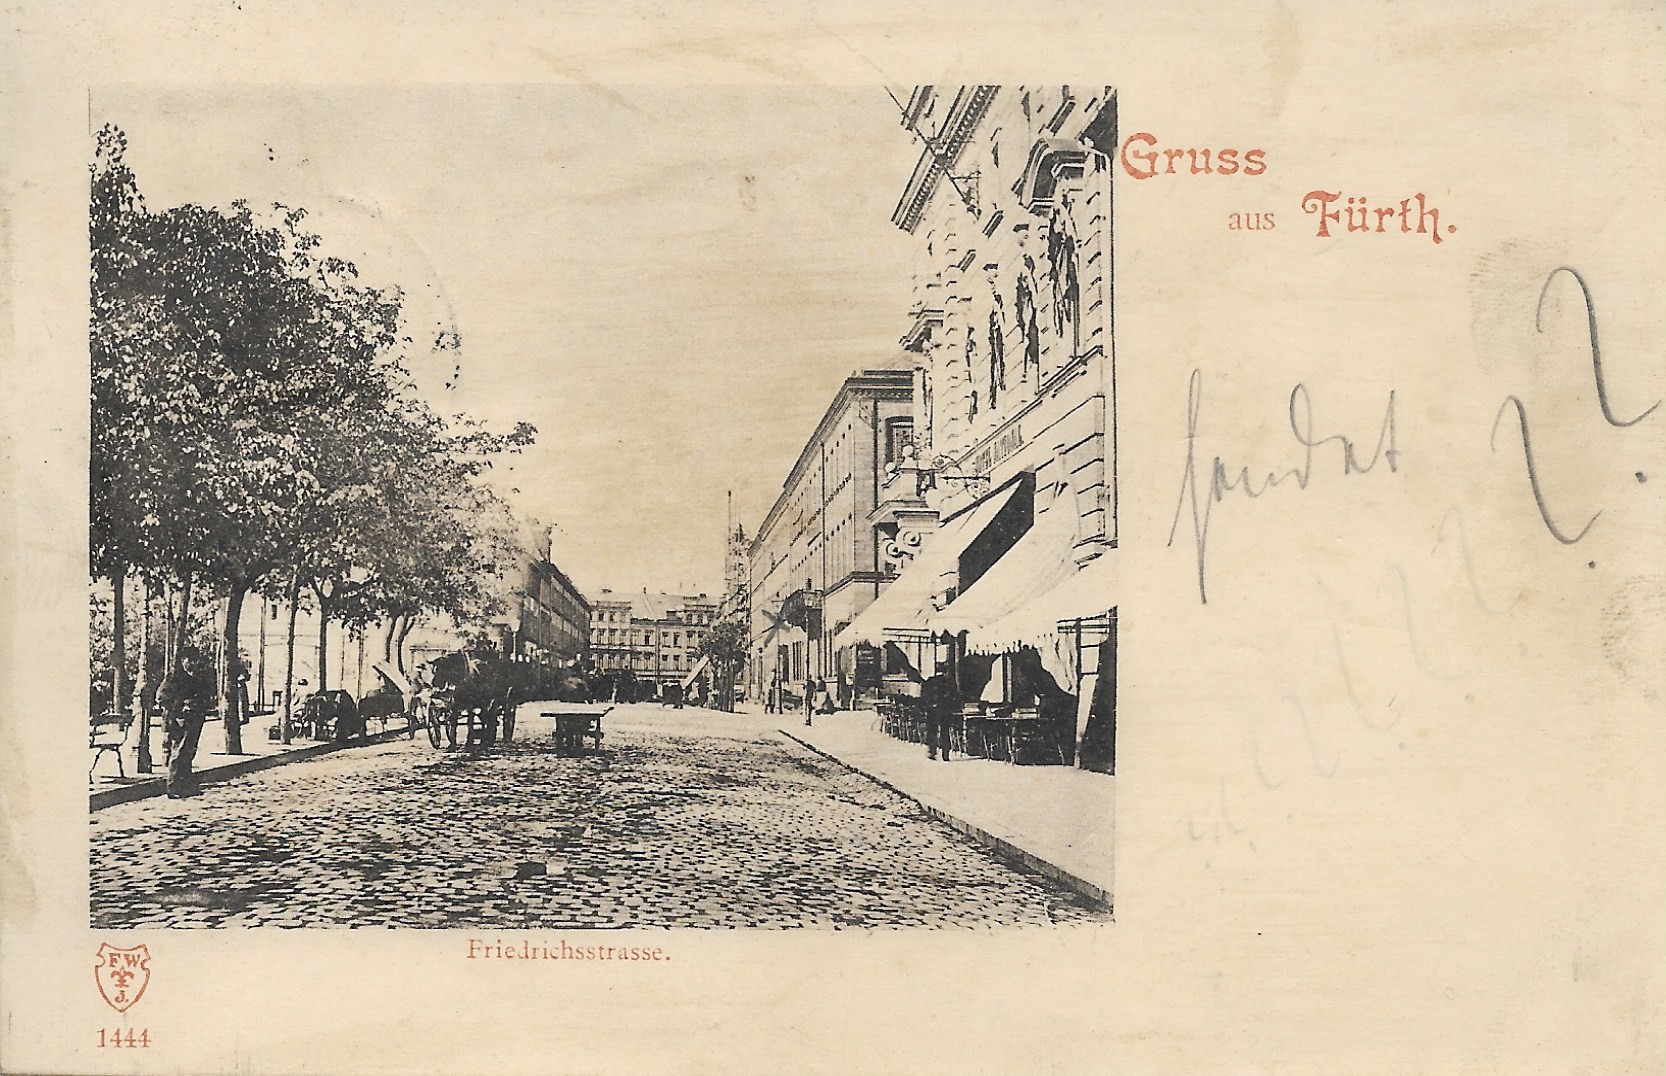 Gruss
aus Fürth.
sendet ? ?
Friedrichsstrasse.
F W
J.
1444